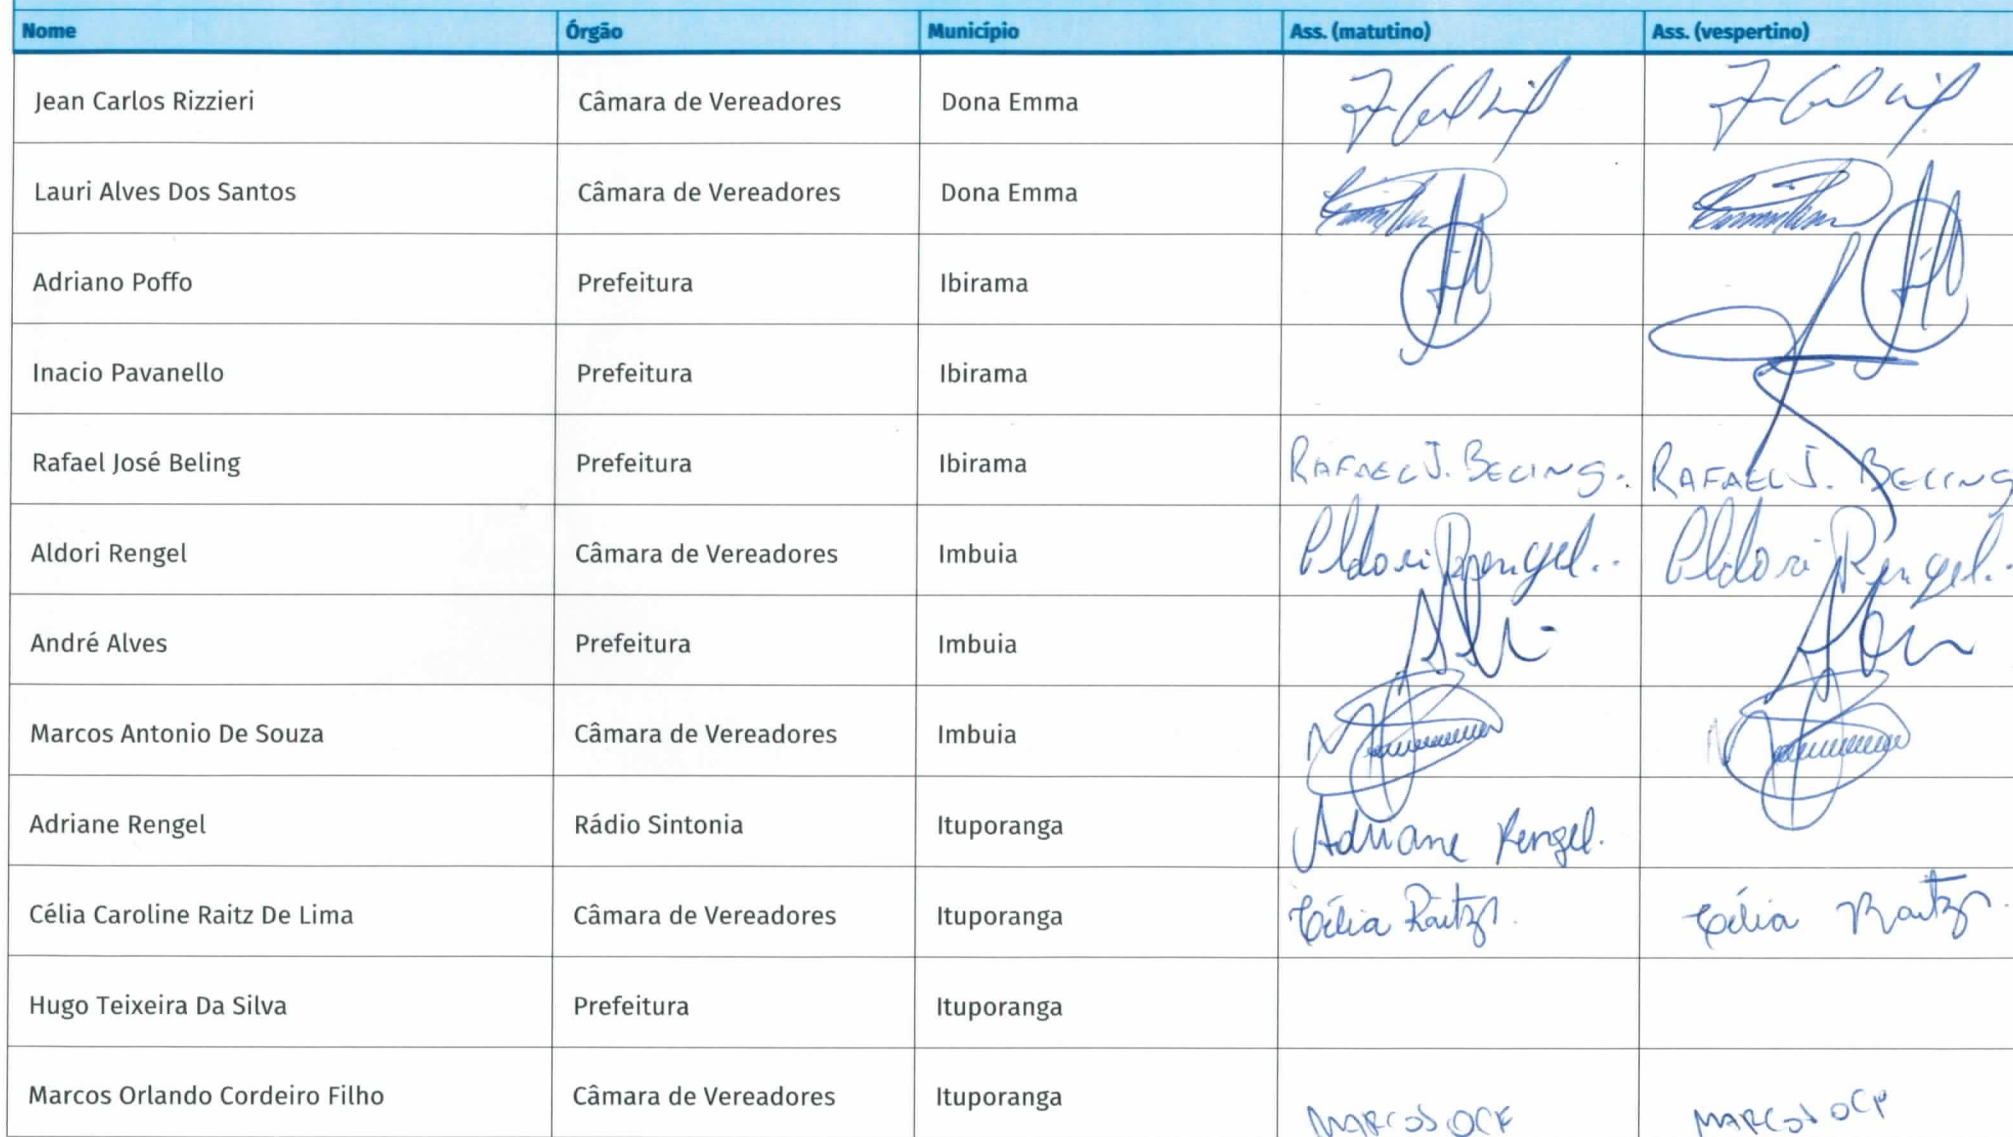 Nome Órgão Município Ass. (matutino) Ass. (vespertino)
Jean Carlos Rizzieri Câmara de Vereadores Dona Emma
Lauri Alves Dos Santos Câmara de Vereadores Dona Emma
Adriano Poffo Prefeitura Ibirama
Inacio Pavanello Prefeitura Ibirama
Rafael José Beling Prefeitura Ibirama RAFAEL J. BELING. RAFAEL J. BELING
Aldori Rengel Câmara de Vereadores Imbuia Aldori Rengel.. Aldori Rengel..
André Alves Prefeitura Imbuia
Marcos Antonio De Souza Câmara de Vereadores Imbuia
Adriane Rengel Rádio Sintonia Ituporanga Adriane Rengel.
Célia Caroline Raitz De Lima Câmara de Vereadores Ituporanga Célia Raitz Célia Raitz
Hugo Teixeira Da Silva Prefeitura Ituporanga
Marcos Orlando Cordeiro Filho Câmara de Vereadores Ituporanga MARCOS OCF MARCOS OCF